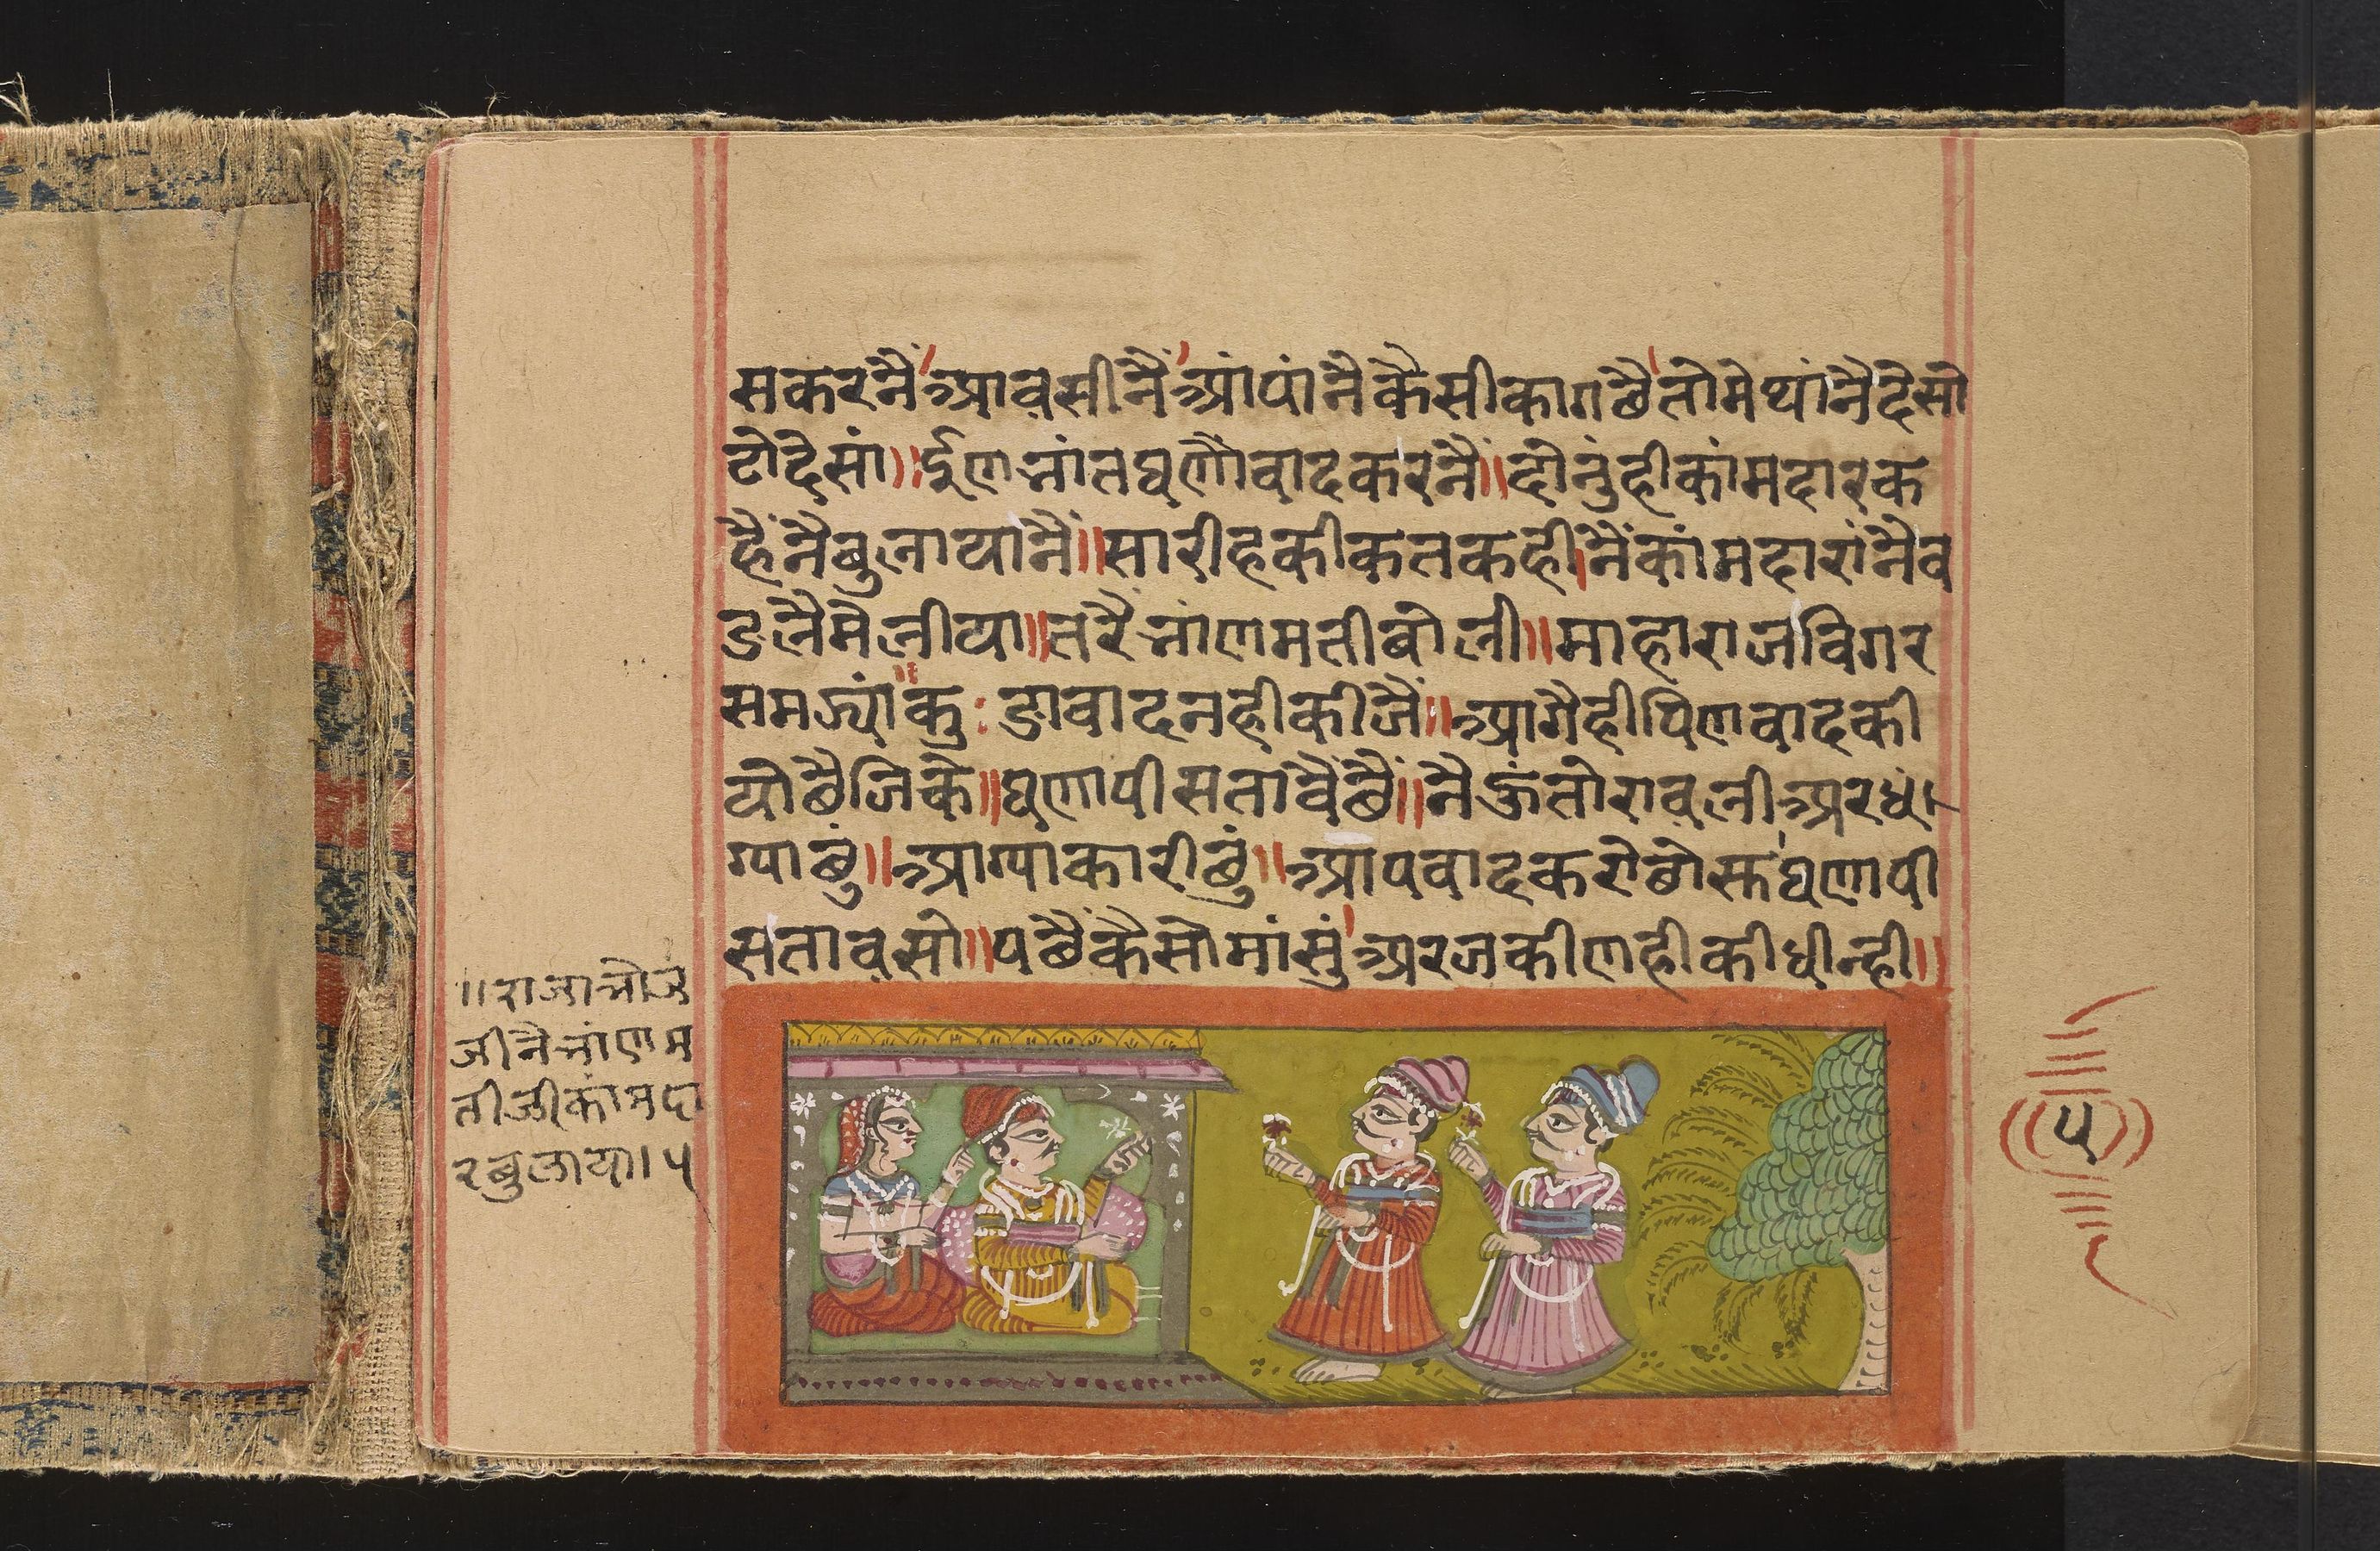 सकरनैं आवसीनैं आंपांनै कैसी काग छै तो मे थांनै देसो
टो देसां ॥ ईण भांत घणौ वाद करनैं ॥ दोनुं ही कांमदार क
हैंनै बुलाया नैं ॥ सारी हकीकत कही नैं कांमदारांनै व
डलै मेलीया ॥ तरै भांणमती बोली ॥ माहाराज विगर
समज्यां कु डा वाद नही कीजैं ॥ आगै ही पिण वाद की
यो छै जिके ॥ घणा पीसतावैं छैं ॥ नै ऊंतो रावली अरधां
ग्या छुं ॥ आग्याकारी छुं ॥ आप वाद करो छो स्त घणा पी
सतावसो ॥ पछैं कैसो मांसुं अरज की ण ही की धी न्ही ॥
॥ राजा भोज
जीनै भांणम
तीजी कांमदा
र बुलाया । ५
५